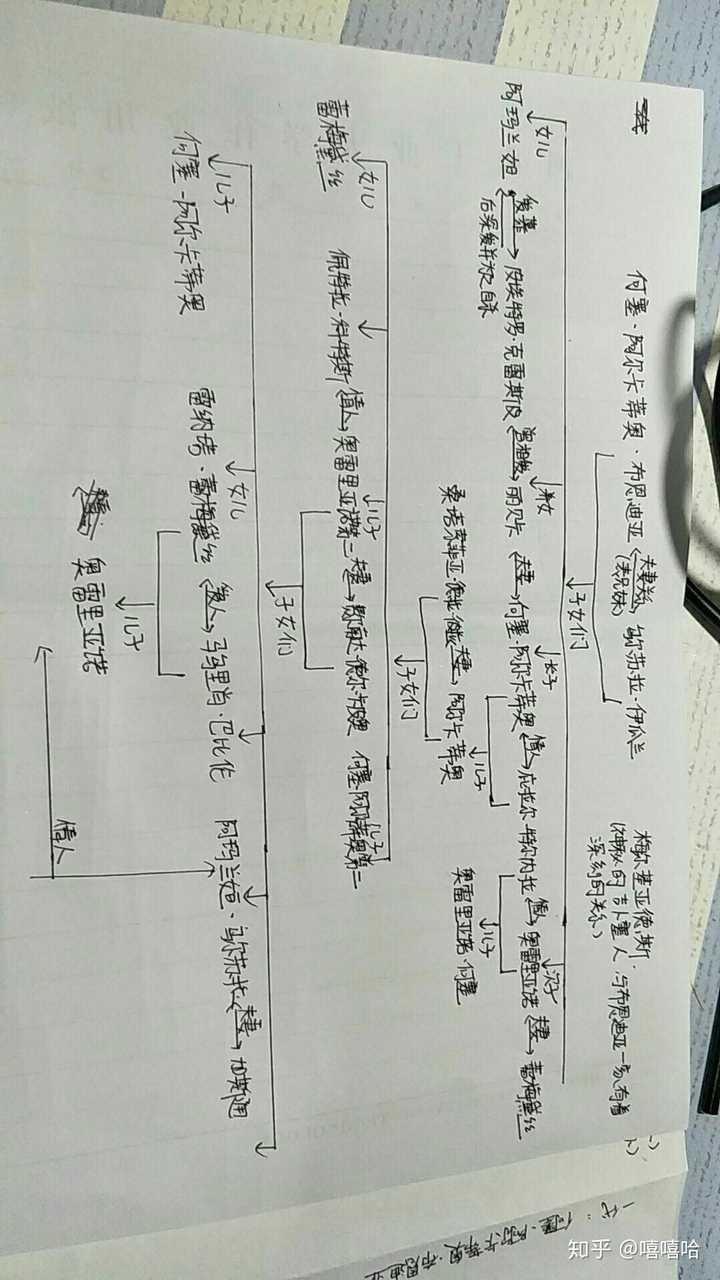 何塞·阿尔卡蒂奥·布恩迪亚 夫妻关系 乌尔苏拉·伊瓜兰
(表兄妹)
梅尔基亚德斯·
(神秘的吉卜赛人,与布恩迪亚一家有着
深刻的关系)
子女们
女儿 养女 长子 次子
阿玛兰妲 爱慕 皮埃特罗·克雷斯皮 曾相爱 丽贝卡 夫妻 何塞·阿尔卡蒂奥 情人 庇拉尔·特尔内拉 情人 奥雷里亚诺 夫妻 蕾梅黛丝
后深爱并为之自杀
儿子 儿子
桑塔索菲亚·德拉·彼达 夫妻 阿尔卡蒂奥
奥雷里亚诺·何塞
子女们
女儿 儿子 儿子
蕾梅黛丝
佩特拉·科特斯 情人 奥雷里亚诺第二 夫妻 费尔南达·德尔·卡皮奥 何塞·阿尔卡蒂奥第二
子女们
儿子 女儿
何塞·阿尔卡蒂奥
雷纳塔·蕾梅黛丝 情人 马乌里肖·巴比伦
阿玛兰妲·乌尔苏拉 夫妻 加斯通
儿子
奥雷里亚诺
情人
一代:何塞·阿尔卡蒂奥·布恩迪亚
知乎 @嘻嘻哈